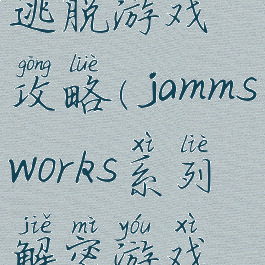 逃脱游戏
gōng lüè
攻略(jamms
xì liè
works系列
jiě mì yóu xì
解密游戏